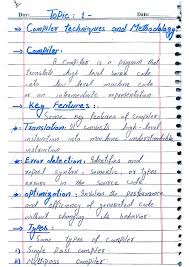 Day: Date:
Topic: 1-
→ Compiler techniques and Methodology
→ Compiler:
A compiler is a program that
translate high level source code
into low level machine code
or an immediate representation
→ Key Features:
Some key features of compiler
* Translation: It converts high-level
instruction into machine understandable
instruction
* Error detection: Identifies and
report syntax, semantic, or types
errors in the source code
* optimization: the performance
and efficiency of generated code
without changing its behavior
→ Types:
Some types of compiler
1) Single Pass compiler
2) Multipass Compiler